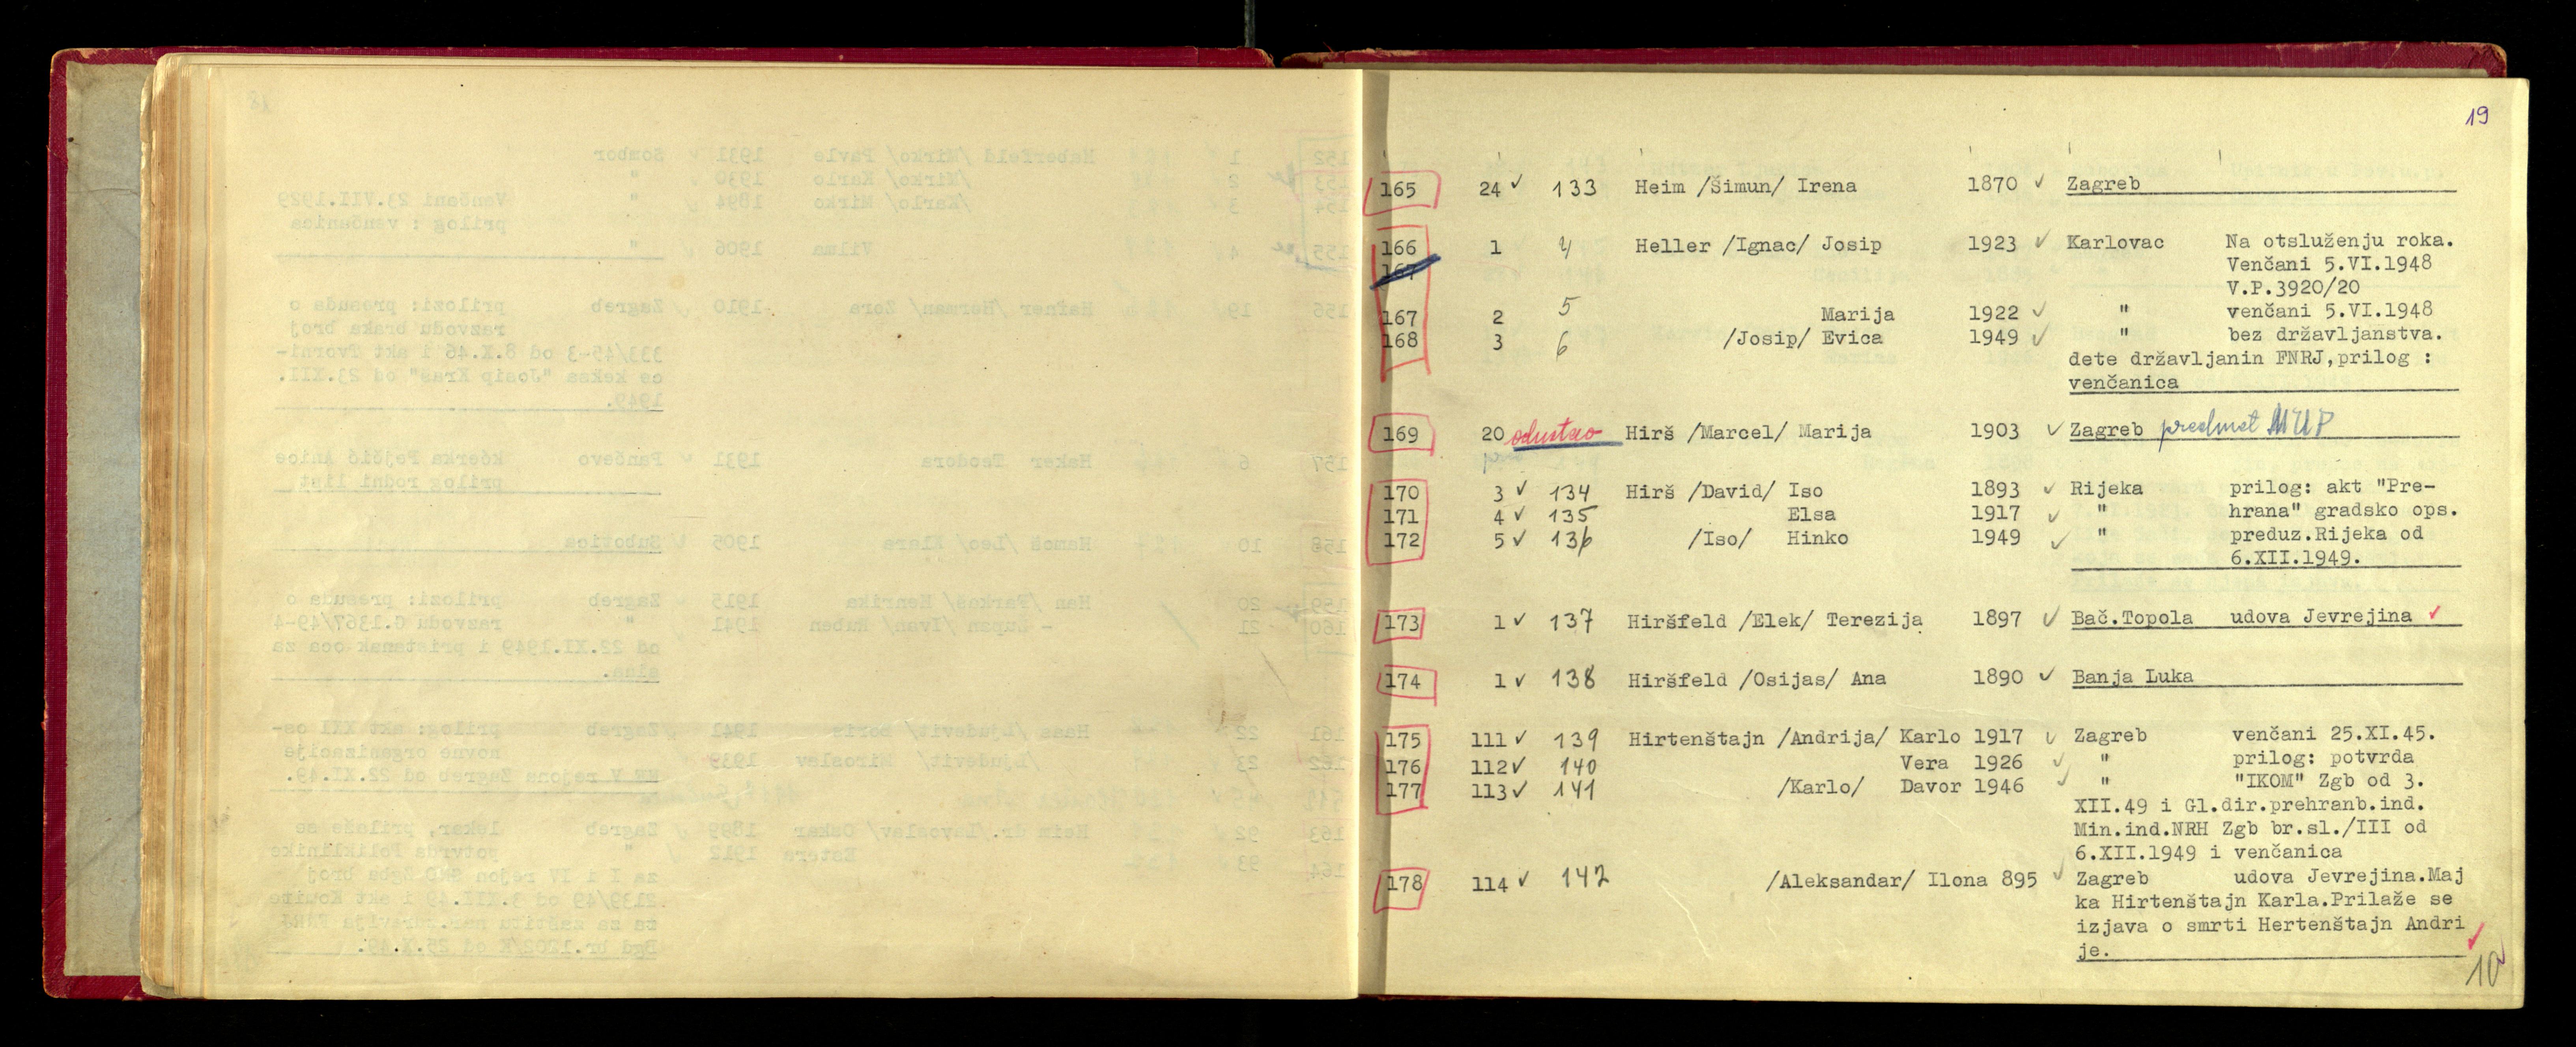 19
165 24 ✓ 133 Heim /Šimun/ Irena 1870 ✓ Zagreb
166 1 4 Heller /Ignac/ Josip 1923 ✓ Karlovac Na otsluženju roka.
167 Venčani 5.VI.1948
V.P.3920/20
167 2 5 Marija 1922 ✓ " venčani 5.VI.1948
168 3 6 /Josip/ Evica 1949 ✓ " bez državljanstva.
dete državljanin FNRJ,prilog :
venčanica
169 20 odustao Hirš /Marcel/ Marija 1903 ✓ Zagreb predmet MUP
170 3 ✓ 134 Hirš /David/ Iso 1893 ✓ Rijeka prilog: akt "Pre-
171 4 ✓ 135 Elsa 1917 ✓ " hrana" gradsko ops.
172 5 ✓ 136 /Iso/ Hinko 1949 ✓ " preduz.Rijeka od
6.XII.1949.
173 1 ✓ 137 Hiršfeld /Elek/ Terezija 1897 ✓ Bač.Topola udova Jevrejina ✓
174 1 ✓ 138 Hiršfeld /Osijas/ Ana 1890 ✓ Banja Luka
175 111 ✓ 139 Hirtenštajn /Andrija/ Karlo 1917 ✓ Zagreb venčani 25.XI.45.
176 112 ✓ 140 Vera 1926 ✓ " prilog: potvrda
177 113 ✓ 141 /Karlo/ Davor 1946 ✓ " "IKOM" Zgb od 3.
XII.49 i Gl.dir.prehranb.ind.
Min.ind.NRH Zgb br.sl./III od
6.XII.1949 i venčanica
178 114 ✓ 142 /Aleksandar/ Ilona 895 ✓ Zagreb udova Jevrejina.Maj
ka Hirtenštajn Karla.Prilaže se
izjava o smrti Hertenštajn Andri
je. ✓
10